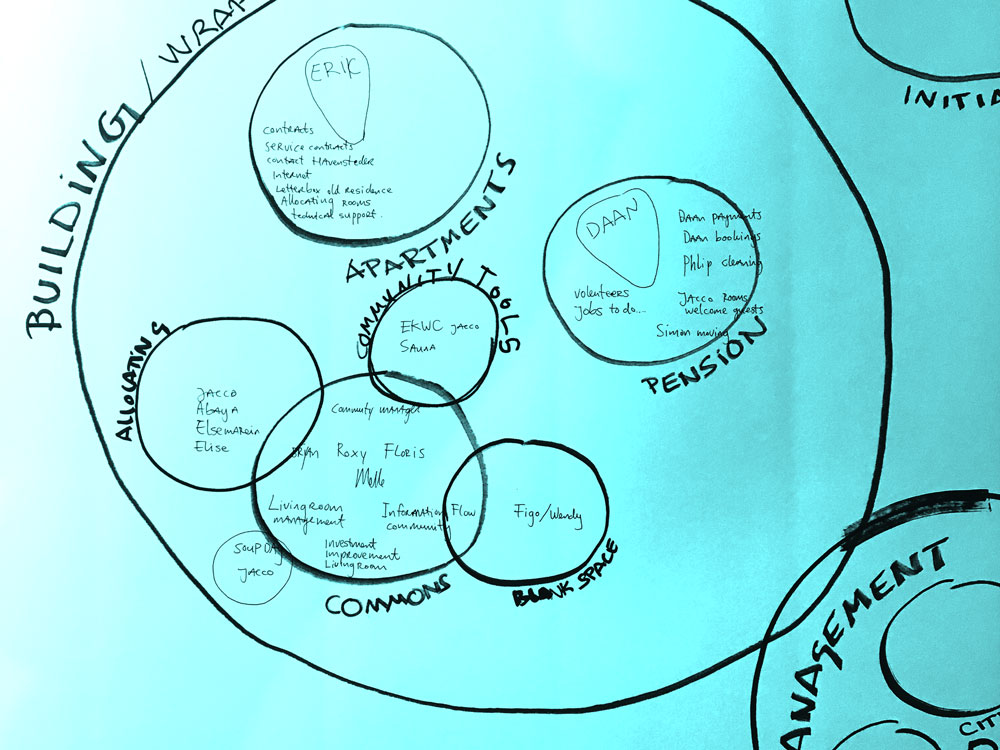 BUILDING / WRAP
INITIA
ERIK
contracts
service contracts
contact Havensteder
Internet
Letterbox old residence
Allocating rooms
technical support.
APARTMENTS
DAAN
Daan payments
Daan bookings
Phlip cleaning
volenteers
jobs to do...
Jacco Rooms
welcome guests
Simon moving
PENSION
COMMUNITY TOOLS
EKWC Jacco
Sauna
ALLOCATING
Jacco
Abaya
Elsemarein
Elise
Commuty manager
Bryan Roxy Floris
Melle
Livingroom
management
Information Flow
community
Investment
Improvement
LivingRoom
COMMONS
SOUP DAJ
JACCO
Figo/Wendy
BLANK SPACE
ANAGEMENT
CIT